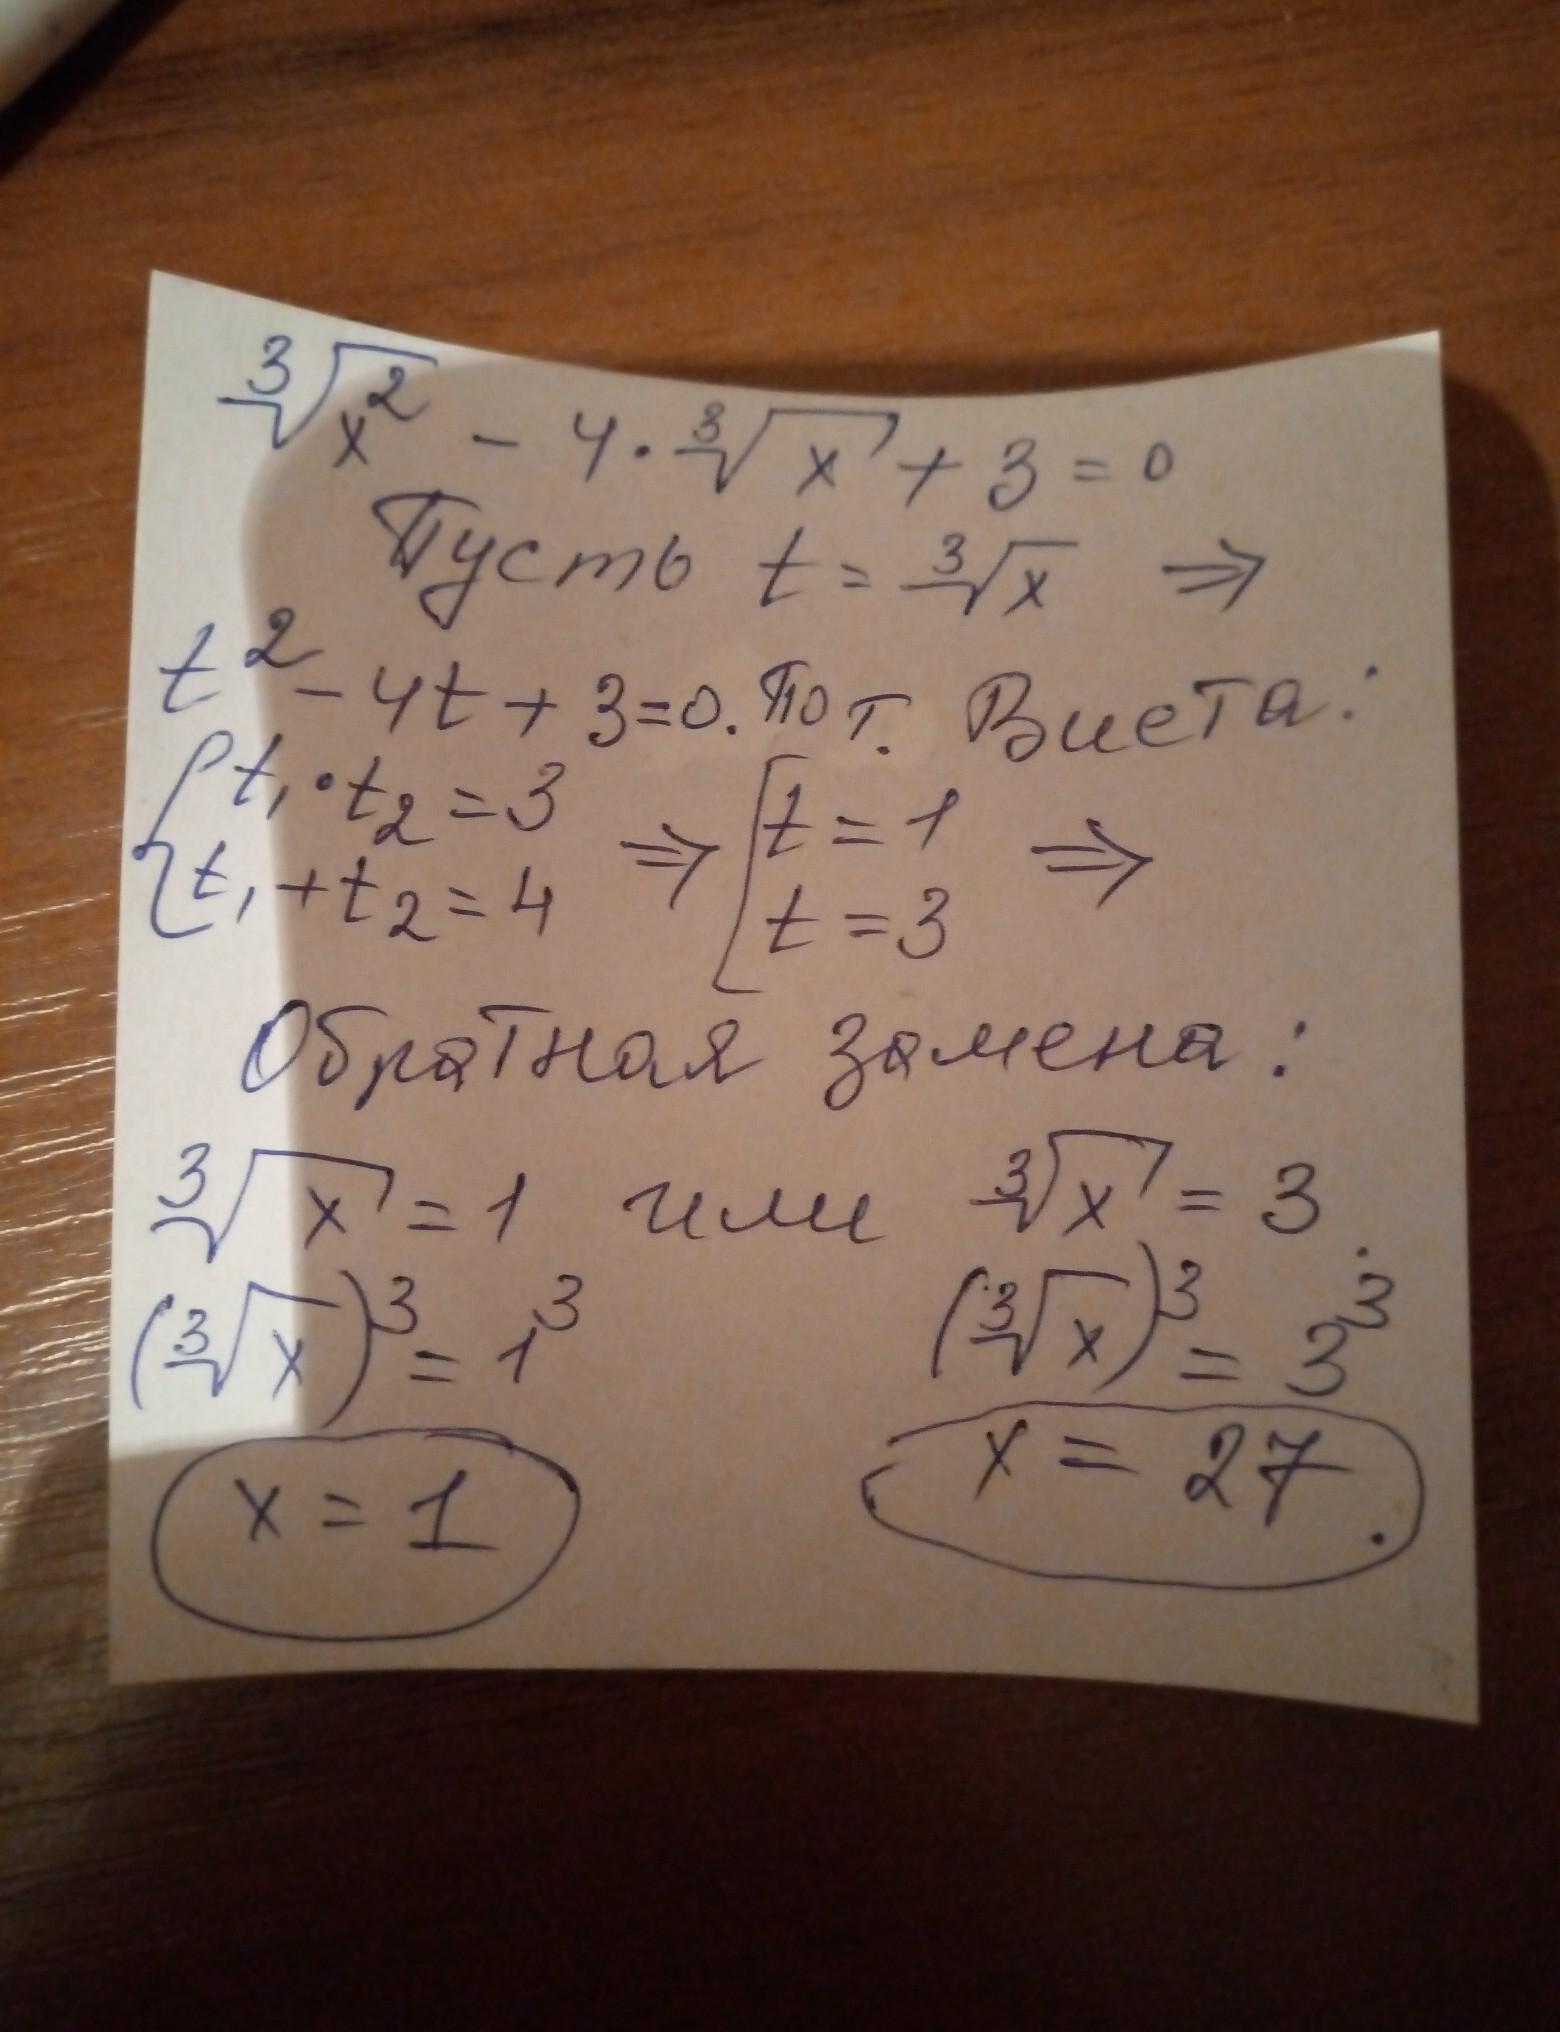 ∛x² − 4·∛x + 3 = 0
Пусть t = ∛x ⇒
t² − 4t + 3 = 0. По т. Виета:
{ t₁·t₂ = 3 ⇒ [ t = 1 ⇒
t₁ + t₂ = 4 t = 3
Обратная замена:
∛x = 1 или ∛x = 3.
(∛x)³ = 1³ (∛x)³ = 3³
x = 1 x = 27.